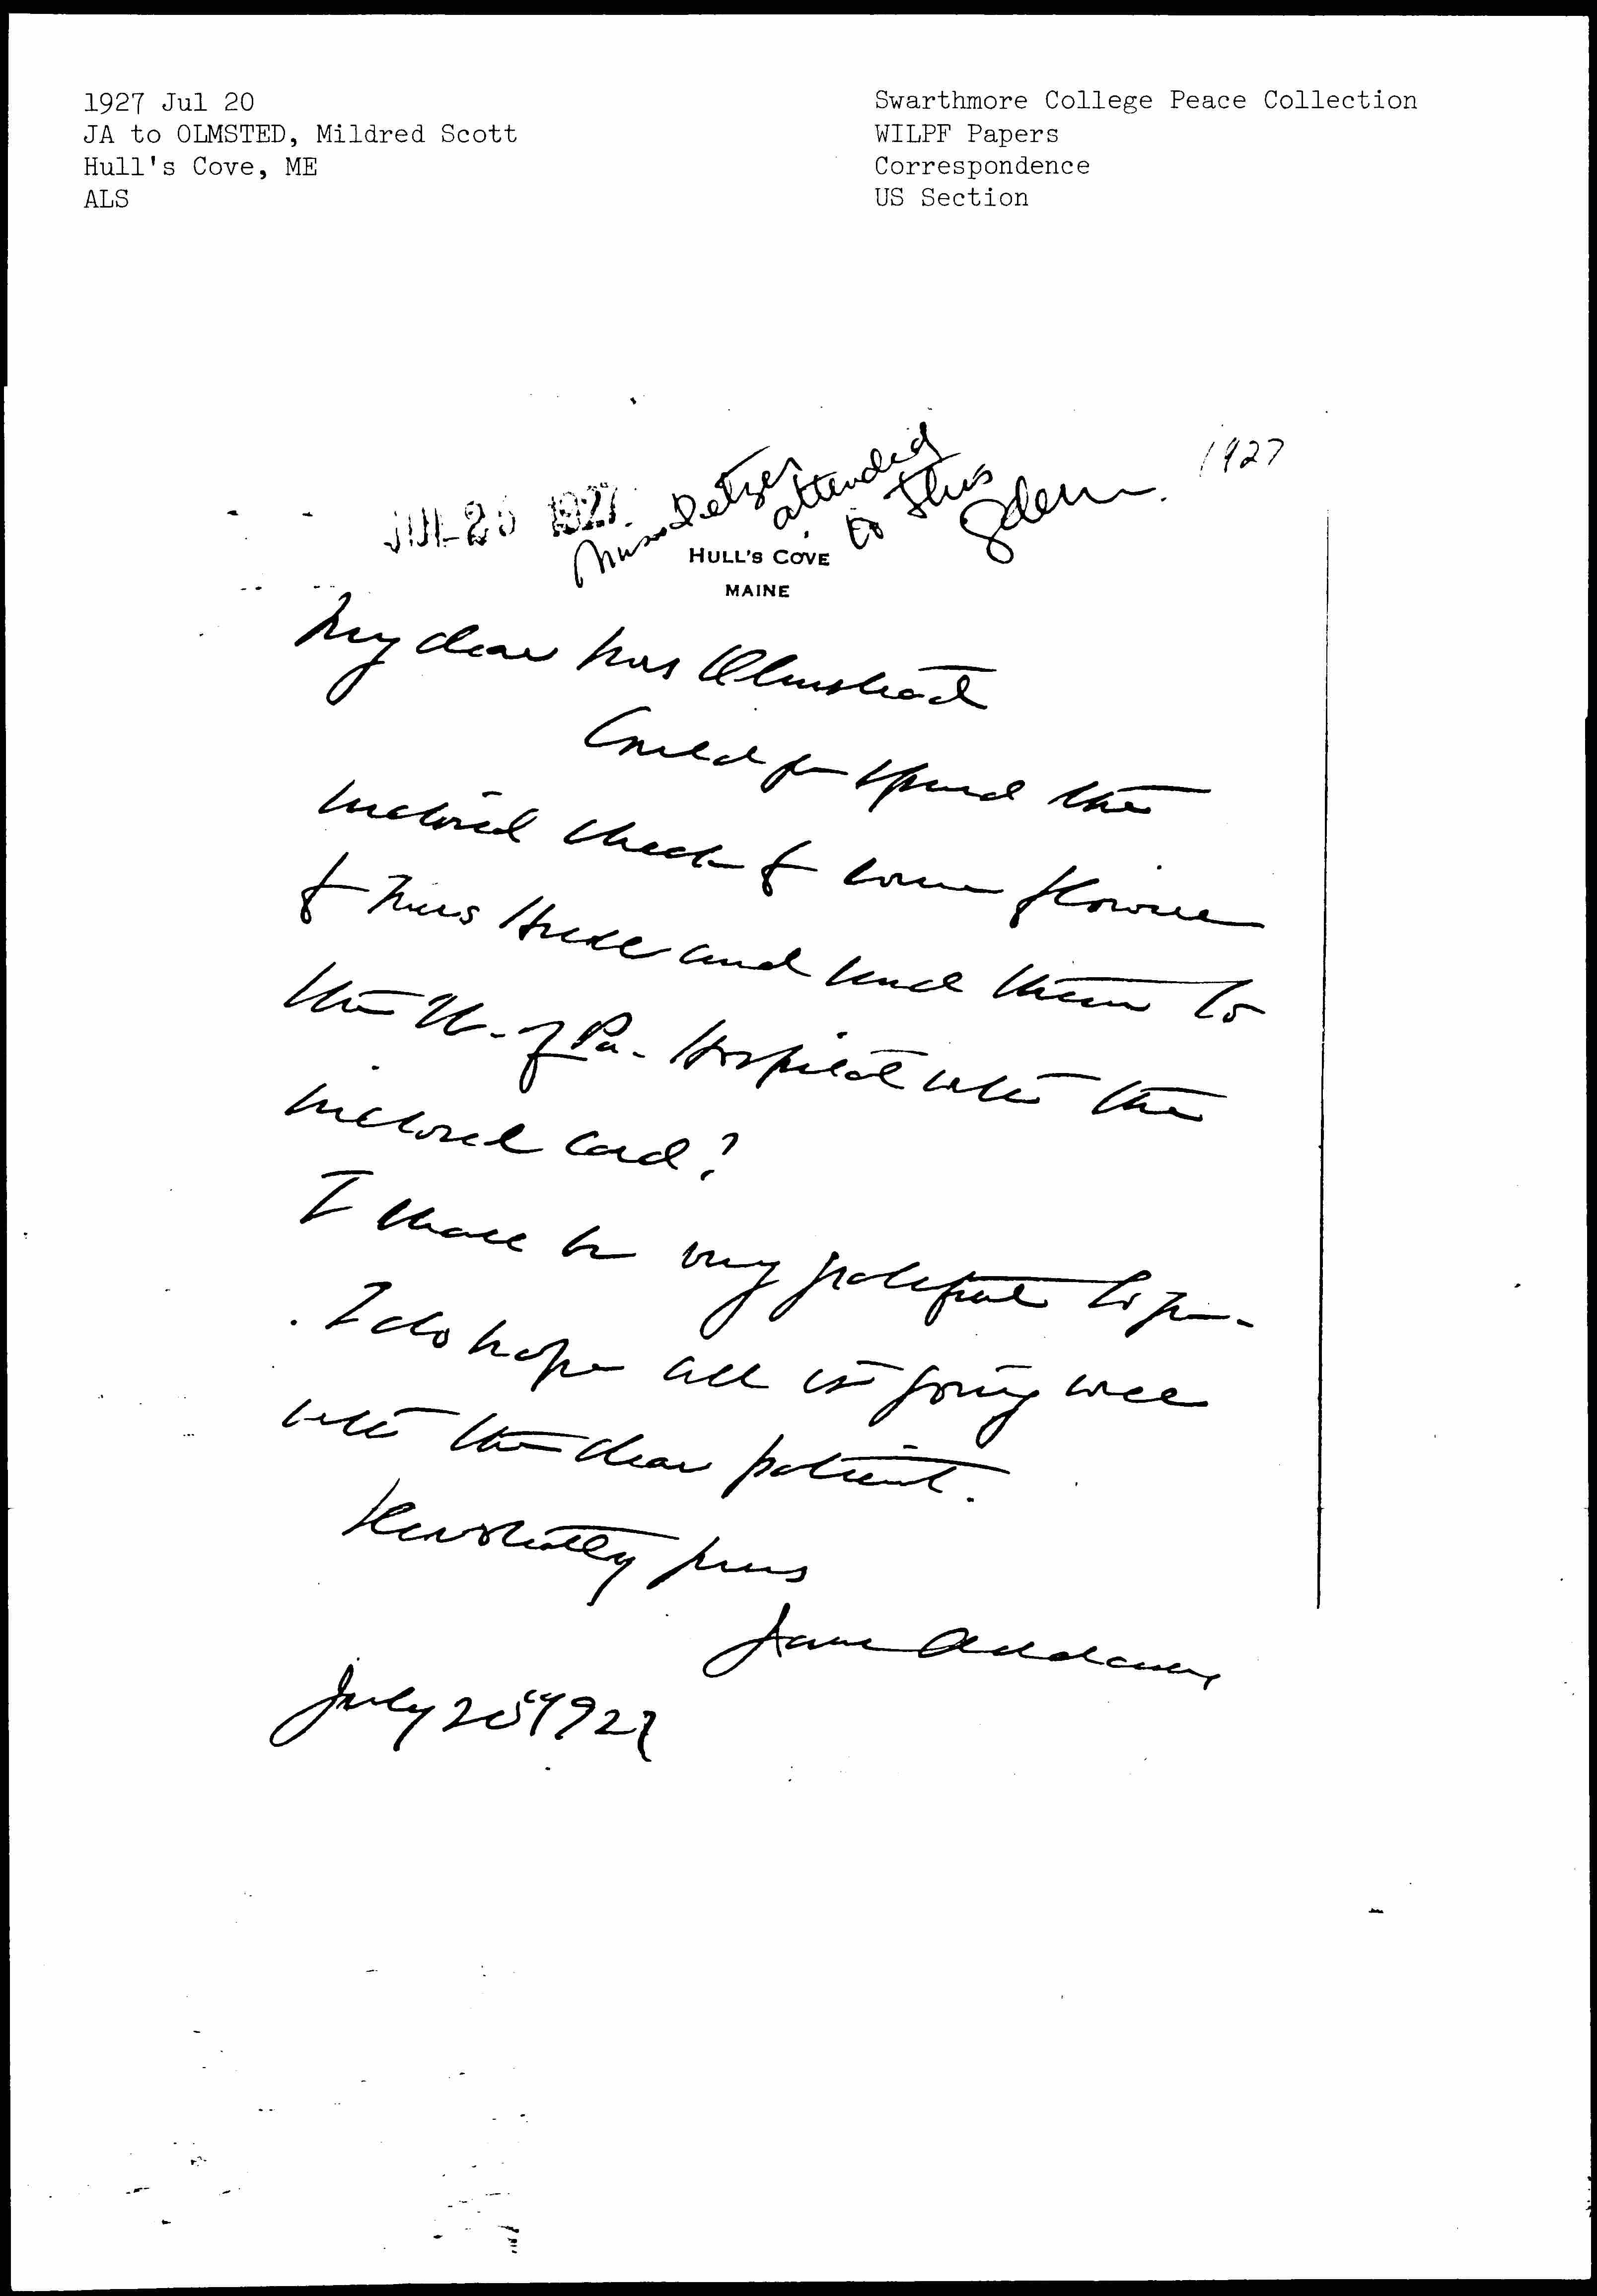 1927 Jul 20
JA to OLMSTED, Mildred Scott
Hull's Cove, ME
ALS
Swarthmore College Peace Collection
WILPF Papers
Correspondence
US Section
1927
JUL 25 1927.
Miss Detzer
attended
to this
HULL'S COVE
MAINE
My dear Mrs Olmstead
Could you spend the
inclosed check for some flowers
for Miss and send them to
the U. of Pa. Hospital with the
inclosed card?
I shall be very grateful to you.
I do hope all is going well
with the dear patient.
Devotedly yours
Jane Addams
July 20" 1927